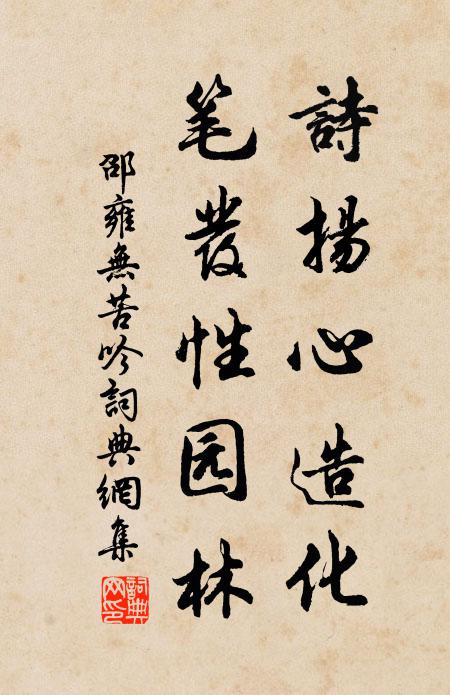 詩揚心造化
笔發性园林
邵雍無苦吟詞典網集
詞典網印